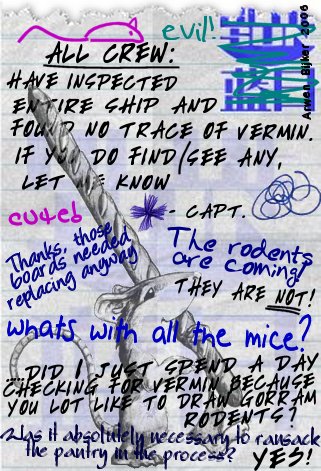 evil!
ALL CREW:
HAVE INSPECTED
ENTIRE SHIP AND
FOUND NO TRACE OF VERMIN.
IF YOU DO FIND/SEE ANY,
LET ME KNOW
- CAPT.
cute!
Thanks, those
boards needed
replacing anyway
The rodents
are coming!
THEY ARE NOT!
whats with all the mice?
...DID I JUST SPEND A DAY
CHECKING FOR VERMIN BECAUSE
YOU LOT LIKE TO DRAW GORRAM
RODENTS?
Was it absolutely necessary to ransack
the pantry in the process?
YES!
Arwen Bijker 2006